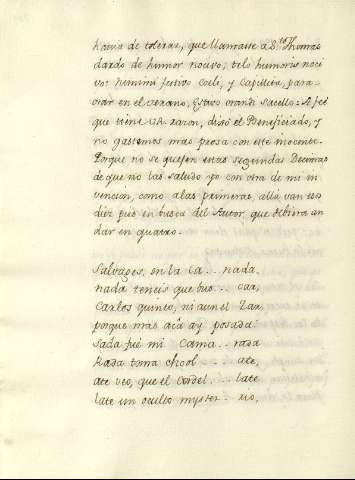 havia de tolerar, que llamasse a D.n Thomas
dardo de humor nocivo; telo humoris noci
vo: himimi festivo Coeli, y Capillita, para
orar en el verano, Estivo orandi Sacello: A fee
que tiene Vd. razon, dixo el Beneficiado, y
no gastemos más prosa con este inocente.
Porque no se quejen estas segundas Decimas
de que no las saludo yo con otra de mi in
vencion, como a las primeras, allá van esos
diez pies en busca del Autor, que debiera an
dar en quatro.
Salvages, en la ca... nada,
nada teneis que bus... car,
Carlos quinto, ni aun el Zar,
porque mas acá ay posada:
Sada fué mi Cama.. rada
Rada toma choco.... ate,
ate veo, que el Cordel... late
late un oculto myster.. rio,